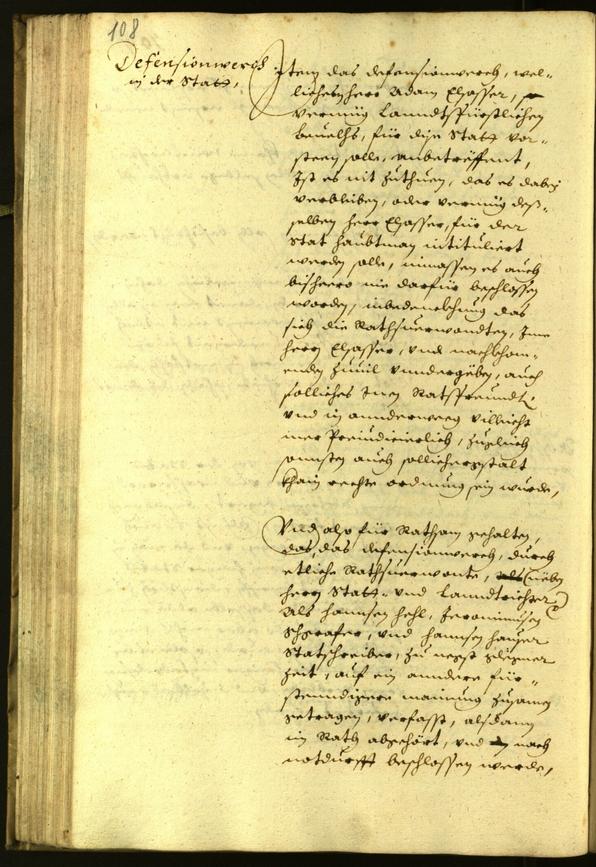 108
Defensionwerch
in der Statt.
Item das defensionwerch, wel-
liches herr Adam Elsasser,
vermüg Lanndtsfürstlichen
beuelhs, für dise Statt vor-
steen solle, anbetröffent,
Ist es nit zuthuen, das es dabej
verbleiben, oder vermüg des-
selben herr Elsasser, für der
Stat haubtman intituliert
werden solle, inmassen es auch
bisheero nie darfür beschlossen
worden, inbedenckhung das
sich die Rathsuerwondten, Ime
herrn Elsasser, vnd nachkhom-
enden zuuil vnndergeben, auch
solliches Inen Ratsfreundt
vnd in annderweeg villeicht
mer Preiudicierlich, zugleich
sonsten auch sollichergstalt
khain rechte ordnung sein würde,
Vnd also für Rathsam gehalten,
das, das defensionwerch, durch
etliche Rathsuerwonte, neben
herrn Statt- vnd Lanndtrichter
Als hannsen hehl, Jeronimusen
, vnd hannsen
Statschreiber, zu negst
zeit, auf ein anndere für-
stenndigere mainung zusamen
getragen, verfasst, alsdann
im Rath abgehört, vnd nach
notdurfft beschlossen werde,